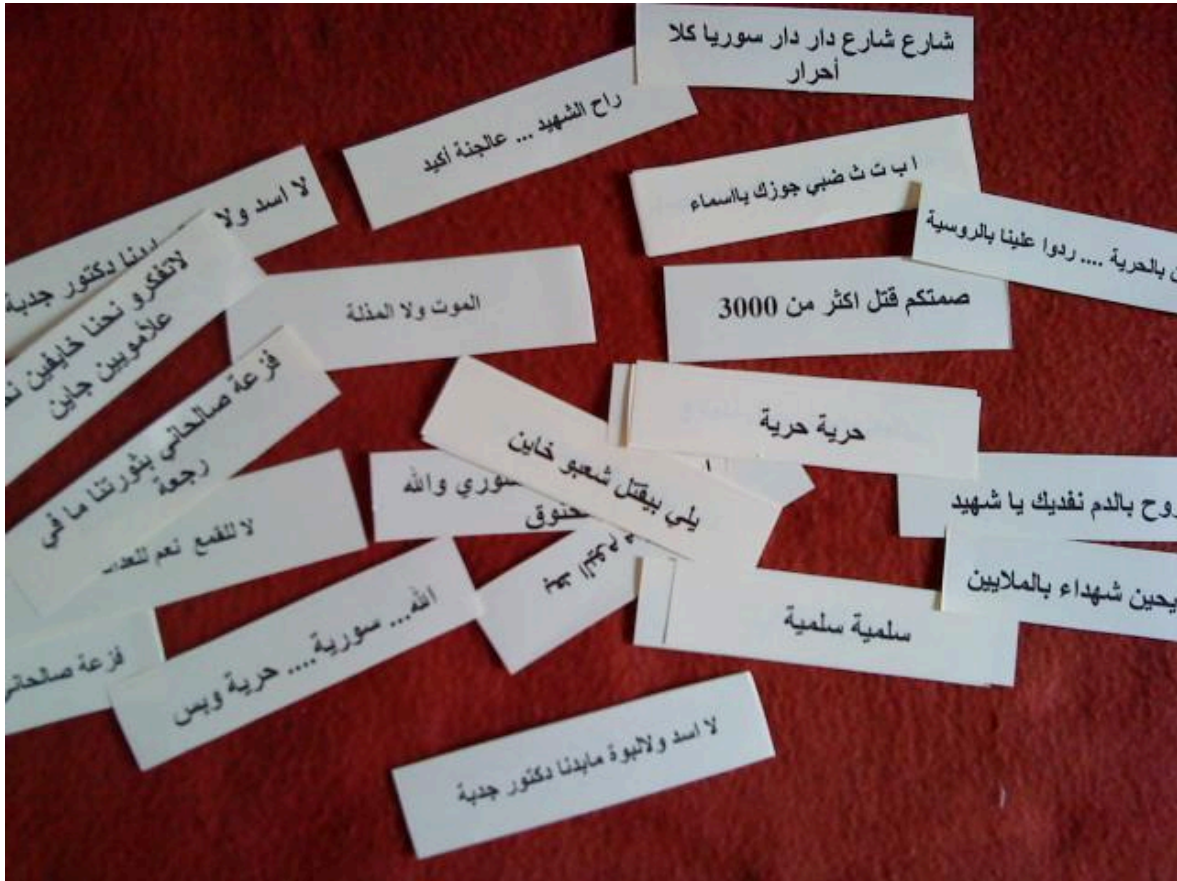 شارع شارع دار دار سوريا كلا
أحرار
راح الشهيد ... عالجنة أكيد
ا ب ت ث ضبي جوزك يااسماء
بالحرية .... ردوا علينا بالروسية
لا اسد ولا
بدنا دكتور جدبة
لاتفكرو نحنا خايفين
علامويين جاين
الموت ولا المذلة
صمتكم قتل اكثر من 3000
فزعة صالحاني بثورتنا ما في
رجعة
حرية حرية
يلي بيقتل شعبو خاين
سوري والله
بالدم نفديك يا شهيد
لا للقمع نعم
بعد اليوم
شهداء بالملايين
سلمية سلمية
فزعة صالحاني
الله... سورية.... حرية وبس
لا اسد ولالبوة مابدنا دكتور جدبة